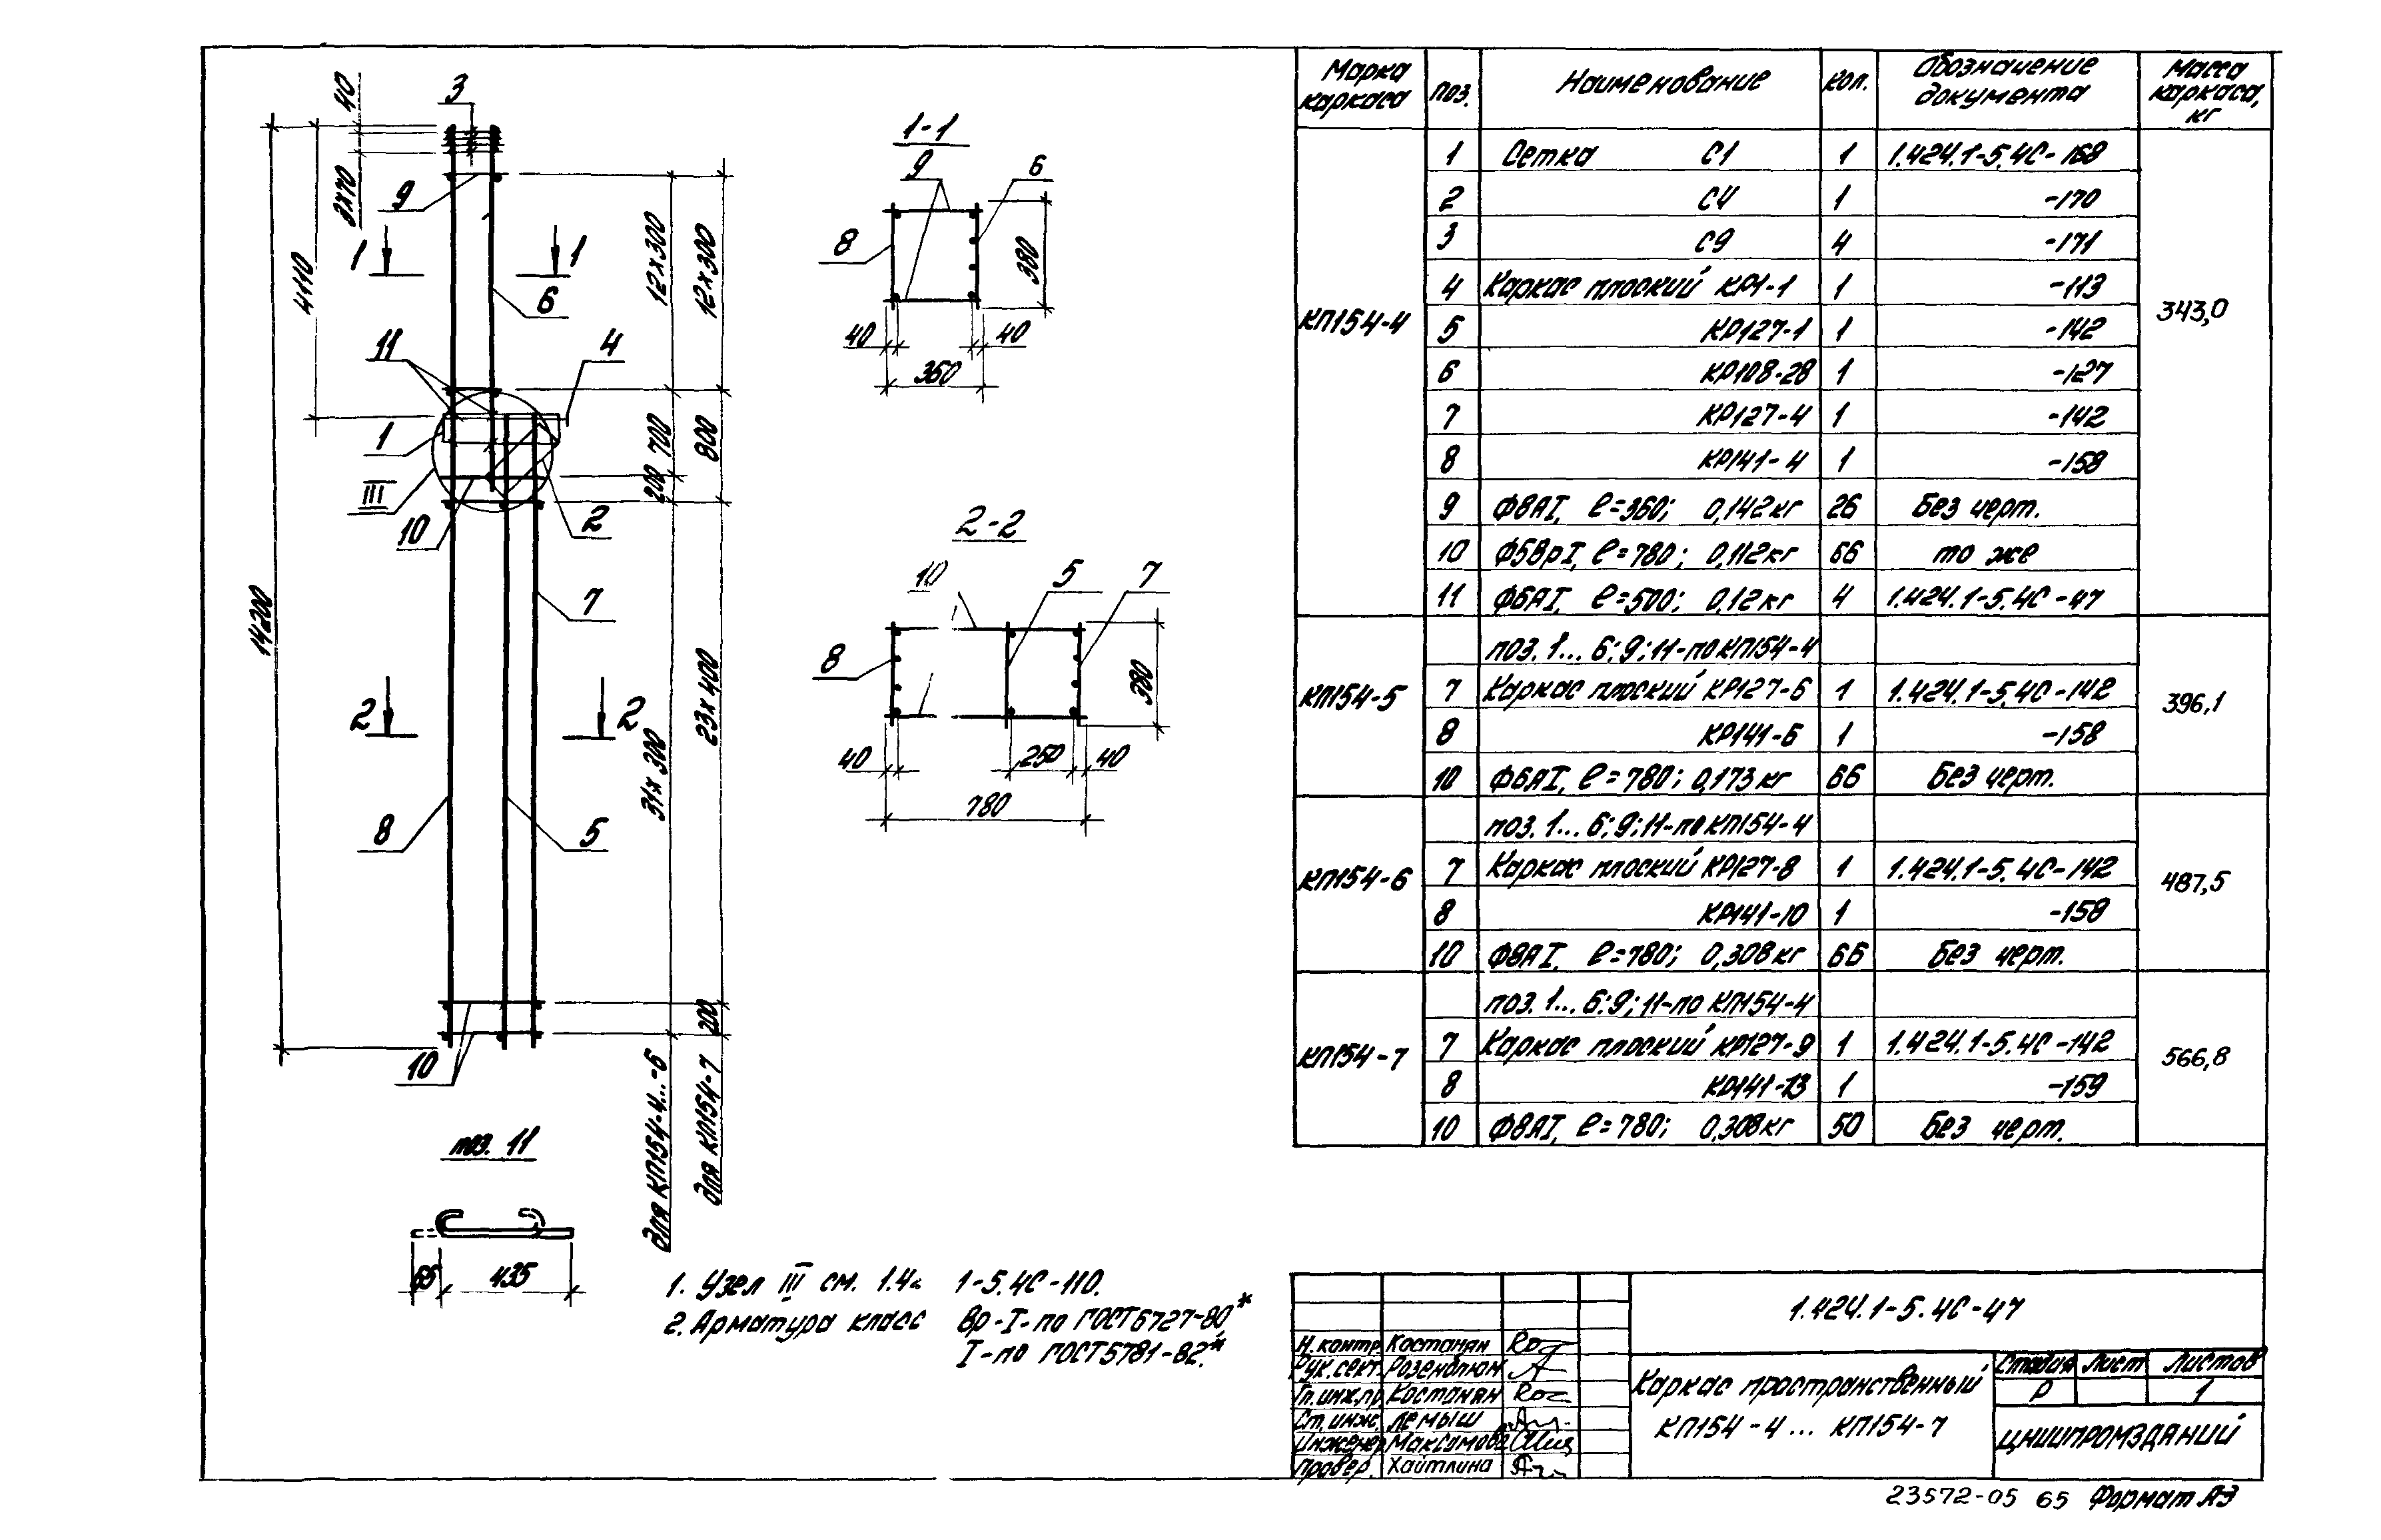 40
3
2х70
9
4110
1
1
6
11
4
1
III
10
2
7
14200
2
2
8
5
10
12х300
12х300
700
800
200
31х300
23х400
200
для КП154-4...-6
для КП154-7
1-1
9
6
8
380
40
40
360
2-2
10
5
7
8
380
40
250
40
780
поз. 11
65
435
1. Узел III см. 1.4 1-5.4С-110.
2. Арматура класс Вр-I-по ГОСТ6727-80*
I-по ГОСТ5781-82*.
Марка каркаса | поз. | Наименование | кол. | Обозначение документа | Масса каркаса, кг
КП154-4 | 343,0
1 Сетка С1 1 1.424.1-5.4С-168
2 С4 1 -170
3 С9 4 -171
4 Каркас плоский КР1-1 1 -113
5 КР127-1 1 -142
6 КР108-28 1 -127
7 КР127-4 1 -142
8 КР141-4 1 -158
9 Ф8АI, ℓ=360; 0,142кг 26 Без черт.
10 Ф5ВрI, ℓ=780; 0,112кг 66 то же
11 Ф6АI, ℓ=500; 0,12кг 4 1.424.1-5.4С-47
КП154-5 | 396,1
поз. 1...6;9;11-по КП154-4
7 Каркас плоский КР127-6 1 1.424.1-5.4С-142
8 КР141-6 1 -158
10 Ф6АI, ℓ=780; 0,173кг 66 Без черт.
КП154-6 | 487,5
поз. 1...6;9;11-по КП154-4
7 Каркас плоский КР127-8 1 1.424.1-5.4С-142
8 КР141-10 1 -158
10 Ф8АI, ℓ=780; 0,308кг 66 Без черт.
КП154-7 | 566,8
поз. 1...6;9;11-по КП154-4
7 Каркас плоский КР127-9 1 1.424.1-5.4С-142
8 КР141-13 1 -159
10 Ф8АI, ℓ=780; 0,308кг 50 Без черт.
1.424.1-5.4С-47
Н.контр. Костанян
Рук.сект. Розенблюм
Гл.инж.пр. Костанян
Ст.инж. Лемыш
Инженер Максимова
Провер. Хайтлина
Каркас пространственный
КП154-4...КП154-7
Стадия Лист Листов
Р 1
ЦНИИПРОМЗДАНИЙ
23572-05 65 Формат А3